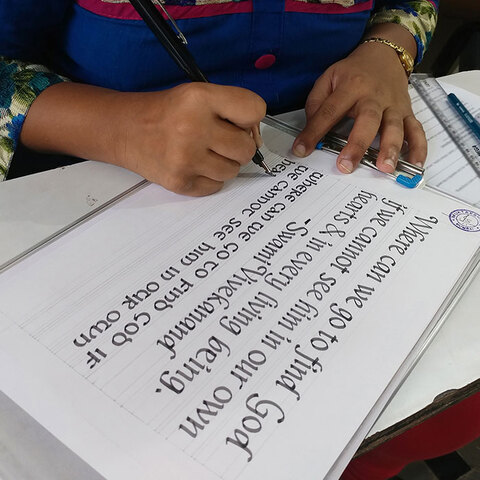 Where can we go to find God
if we cannot see him in our own
hearts & in every living being.
-Swami Vivekanand
where can we go to find God if
we cannot see him in our own
hea